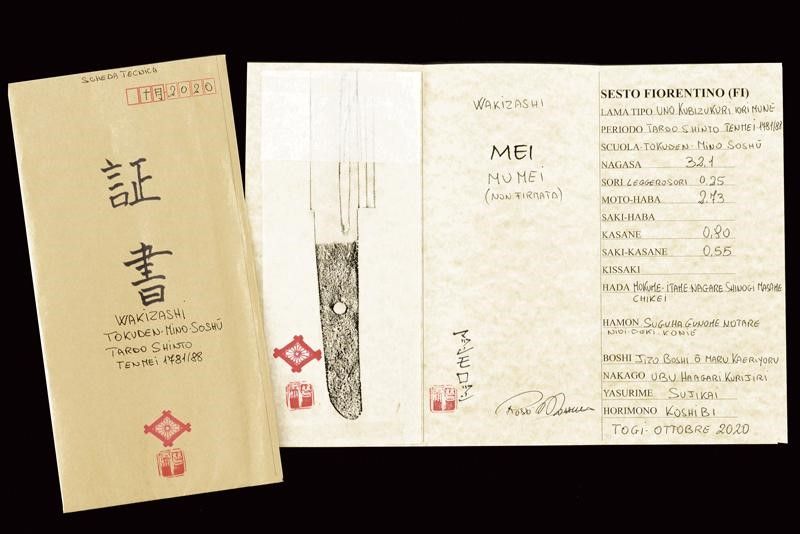 SCHEDA TECNICA
十月2020
証
書
WAKIZASHI
TOKUDEN-MINO-SOSHŪ
TARDO SHINTO
TENMEI 1781/88
WAKIZASHI
MEI
MUMEI
(NON FIRMATA)
SESTO FIORENTINO (FI)
LAMA TIPO UNO KUBIZUKURI IORI MUNE
PERIODO TARDO SHINTO TENMEI 1781/88
SCUOLA-TOKUDEN-MINO SOSHŪ
NAGASA 32.1
SORI LEGGEROSORI 0,25
MOTO-HABA 2.73
SAKI-HABA
KASANE
SAKI-KASANE 0,55
KISSAKI
HADA MOKUME-ITAME NAGARE SHINOGI MASAME
CHIKEI
HAMON SUGUHA GUNOME NOTARE
BOSHI JIZO BOSHI Ō MARU KAERIYORU
NAKAGO UBU HAAGARI KURIJIRI
YASURIME SUJIKAI
HORIMONO KOSHIBI
TOGI-OTTOBRE 2020